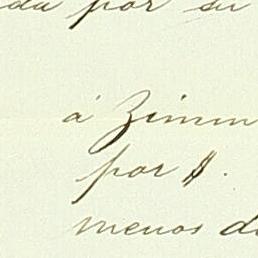 da por su
á Zimm
por $.
menos d